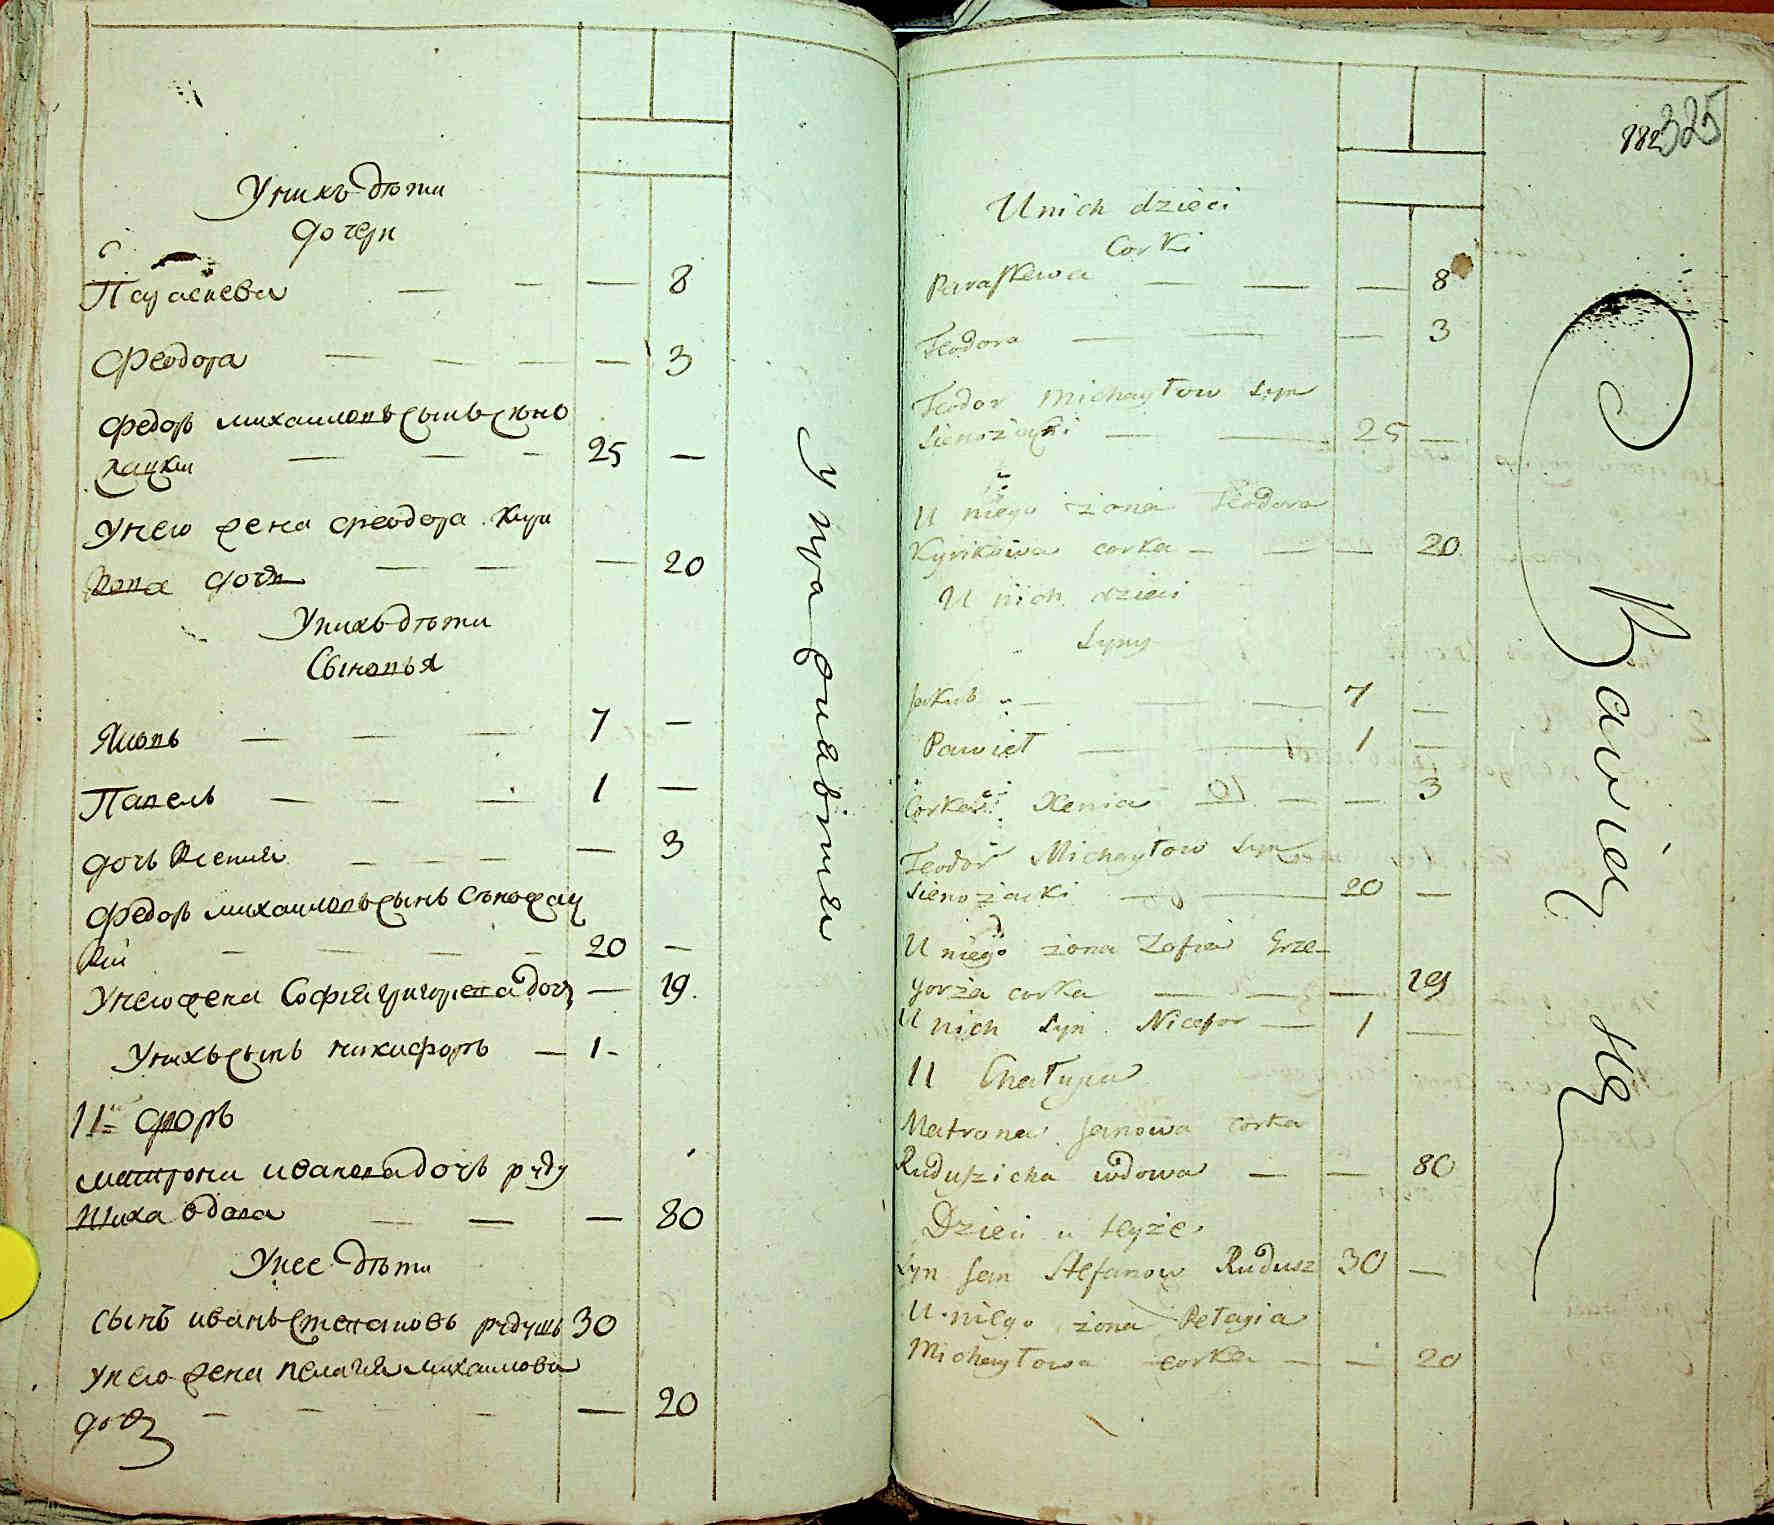 У нихъ дѣти
дочери
Параскева — — — 8
Феодора — — — — 3
Федоръ михаиловъ сынъ сѣно
жацкии — — — 25 —
У него жена феодора Кири
кова дочь — — — 20
У нихъ дѣти
Сыновья
Яковъ — — — 7 —
Павелъ — — — 1 —
дочь Ксения — — — — 3
Федоръ михаиловъ сынъ Сѣножац
кии — — — — 20 —
У него жена Софiя григорева дочь — 19.
У нихъ сынъ никифоръ — 1 -
11 дворъ
матрона иванова дочь руду
шиха вдова — — — 80
У нее дѣти
сынъ иванъ Степановъ рудушъ 30
У него жена пелагия михаилова
дочь — — — — — 20
182 325
U nich dzieci
Corki
Paraskewa — — — 8
Teodora — — — 3
Teodor Michayłow syn
Sienożacki — — 25 —
U niego żona Teodora
Kyrikowa corka — — — 20
U nich dzieci
Syny
Jakub — — — 7 —
Paweł — — 1 —
Corka Xenia — — — 3
Teodor Michayłow Syn
Sienożacki — — 20 —
U niego żona Zofia Grze-
gorza corka — — — 19
U nich Syn Nicefor — 1 —
11 Chałupa
Matrona Janowa corka
Ruduszicha wdowa — — 80
Dzieci u teyże
Syn Jan Stefanow Rudusz 30 —
U niego żona Pelagia
Michayłowa corka — — 20